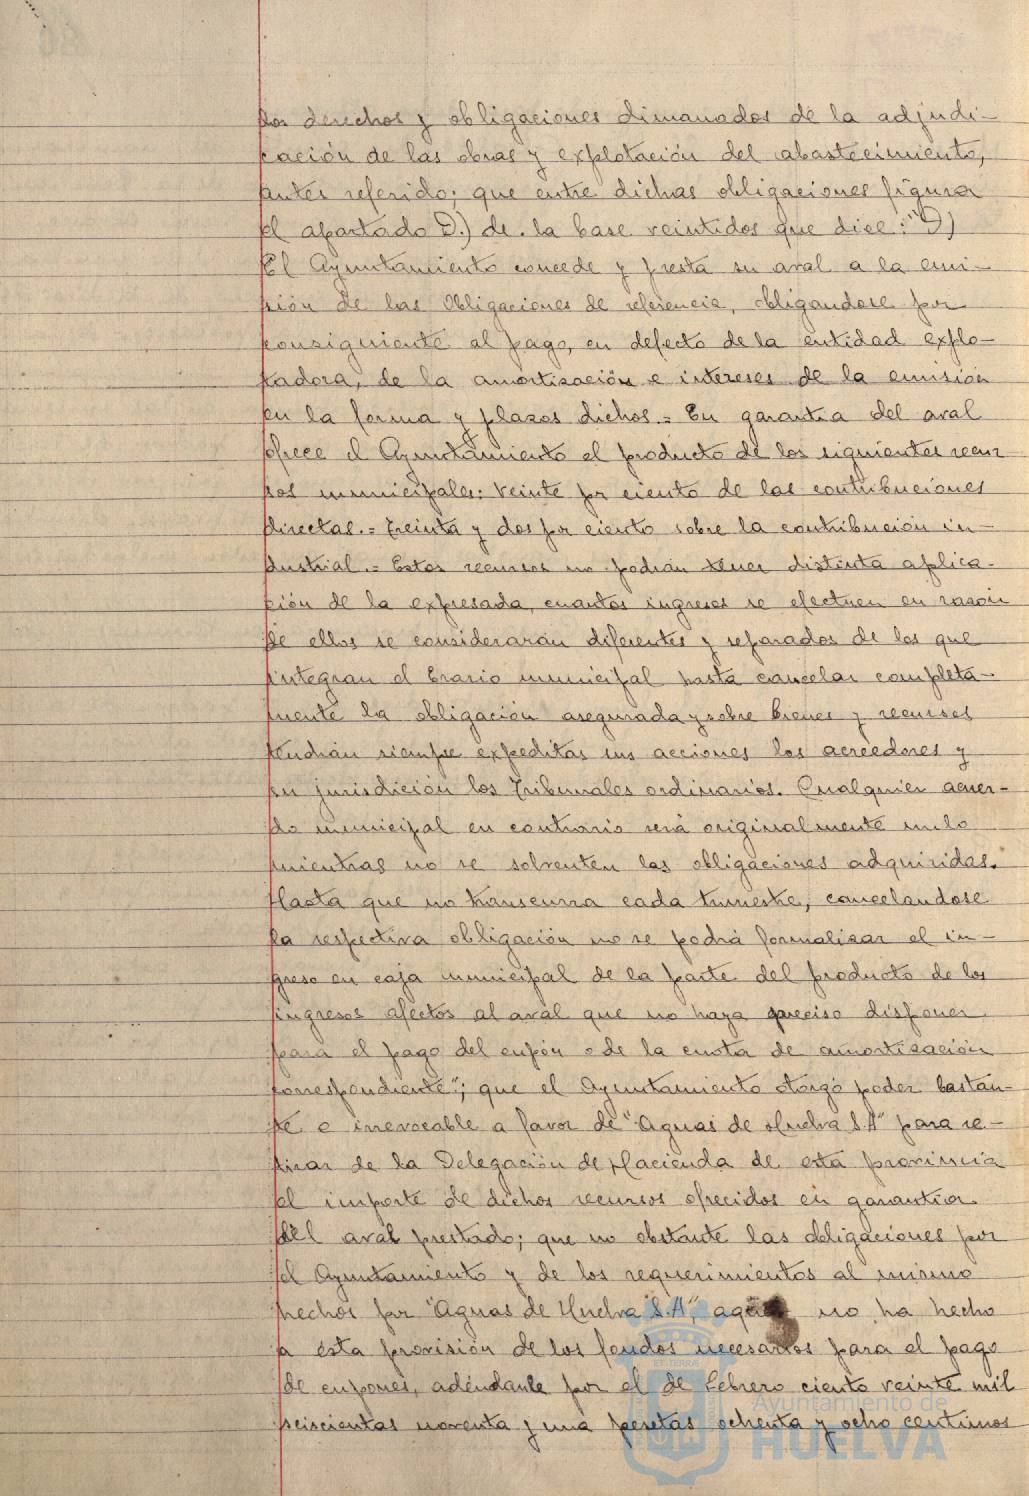 los derechos y obligaciones dimanados de la adjudi-
cación de las obras y explotación del abastecimiento,
antes referido; que entre dichas obligaciones figura
el apartado D.) de la base veintidos que dice: "D)
El Ayuntamiento concede y presta su aval a la emi-
sión de las Obligaciones de referencia, obligandose por
consiguiente al pago, en defecto de la entidad explo-
tadora, de la amortización e intereses de la emisión
en la forma y plazos dichos.= En garantía del aval
ofrece el Ayuntamiento el producto de los siguientes recur
sos municipales: Veinte por ciento de las contribuciones
directas.= Treinta y dos por ciento sobre la contribución in-
dustrial.= Estos recursos no podrán tener distinta aplica-
ción de la expresada, cuantos ingresos se efectuen en razón
de ellos se considerarán diferentes y separados de los que
integran el Erario municipal hasta cancelar completa-
mente la obligación asegurada y sobre bienes y recursos
tendrán siempre expeditas sus acciones los acreedores y
su jurisdición los Tribunales ordinarios. Cualquier acuer-
do municipal en contrario será originalmente nulo
mientras no se solventen las obligaciones adquiridas.
Hasta que no transcurra cada trimestre, cancelandose
la respectiva obligación no se podrá formalizar el in-
greso en caja municipal de la parte del producto de los
ingresos afectos al aval que no haya preciso disponer
para el pago del cupón o de la cuota de amortización
correspondiente"; que el Ayuntamiento otorgó poder bastan-
te e irrevocable a favor de "Aguas de Huelva S.A" para re-
tirar de la Delegación de Hacienda de esta provincia
el importe de dichos recursos ofrecidos en garantía
del aval prestado; que no obstante las obligaciones por
el Ayuntamiento y de los requerimientos al mismo
hechos por "Aguas de Huelva S.A", aquel no ha hecho
a ésta provisión de los fondos necesarios para el pago
de cupones, adeudando por el de Febrero ciento veinte mil
seiscientas noventa y una pesetas ochenta y ocho centimos
Ayuntamiento de
HUELVA